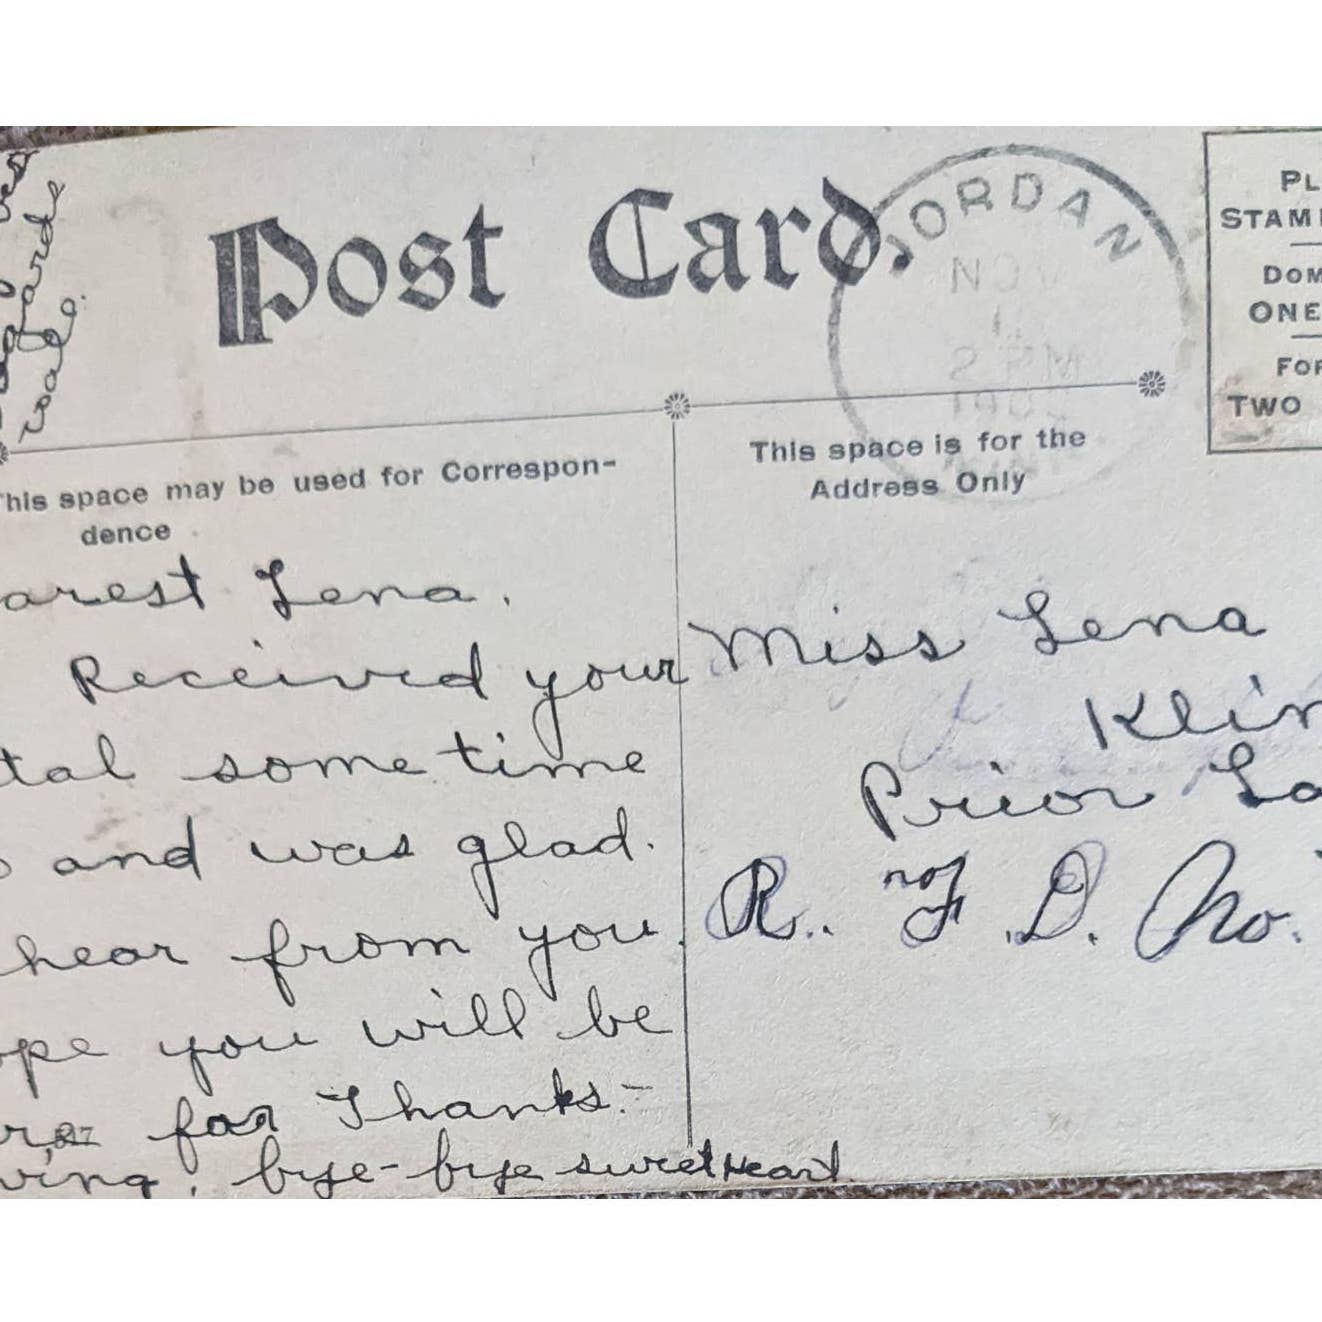 Post Card.
JORDAN
NOV
2 PM
PL
STAM
DOM
ONE
FOR
TWO
This space may be used for Correspon-
dence
This space is for the
Address Only
arest Lena.
Received your
tal some time
and was glad.
hear from you.
ope you will be
for Thanks.-
ving. bye-bye sweetHeart
Miss Lena
Klin
Prior La
R. F. D. No.